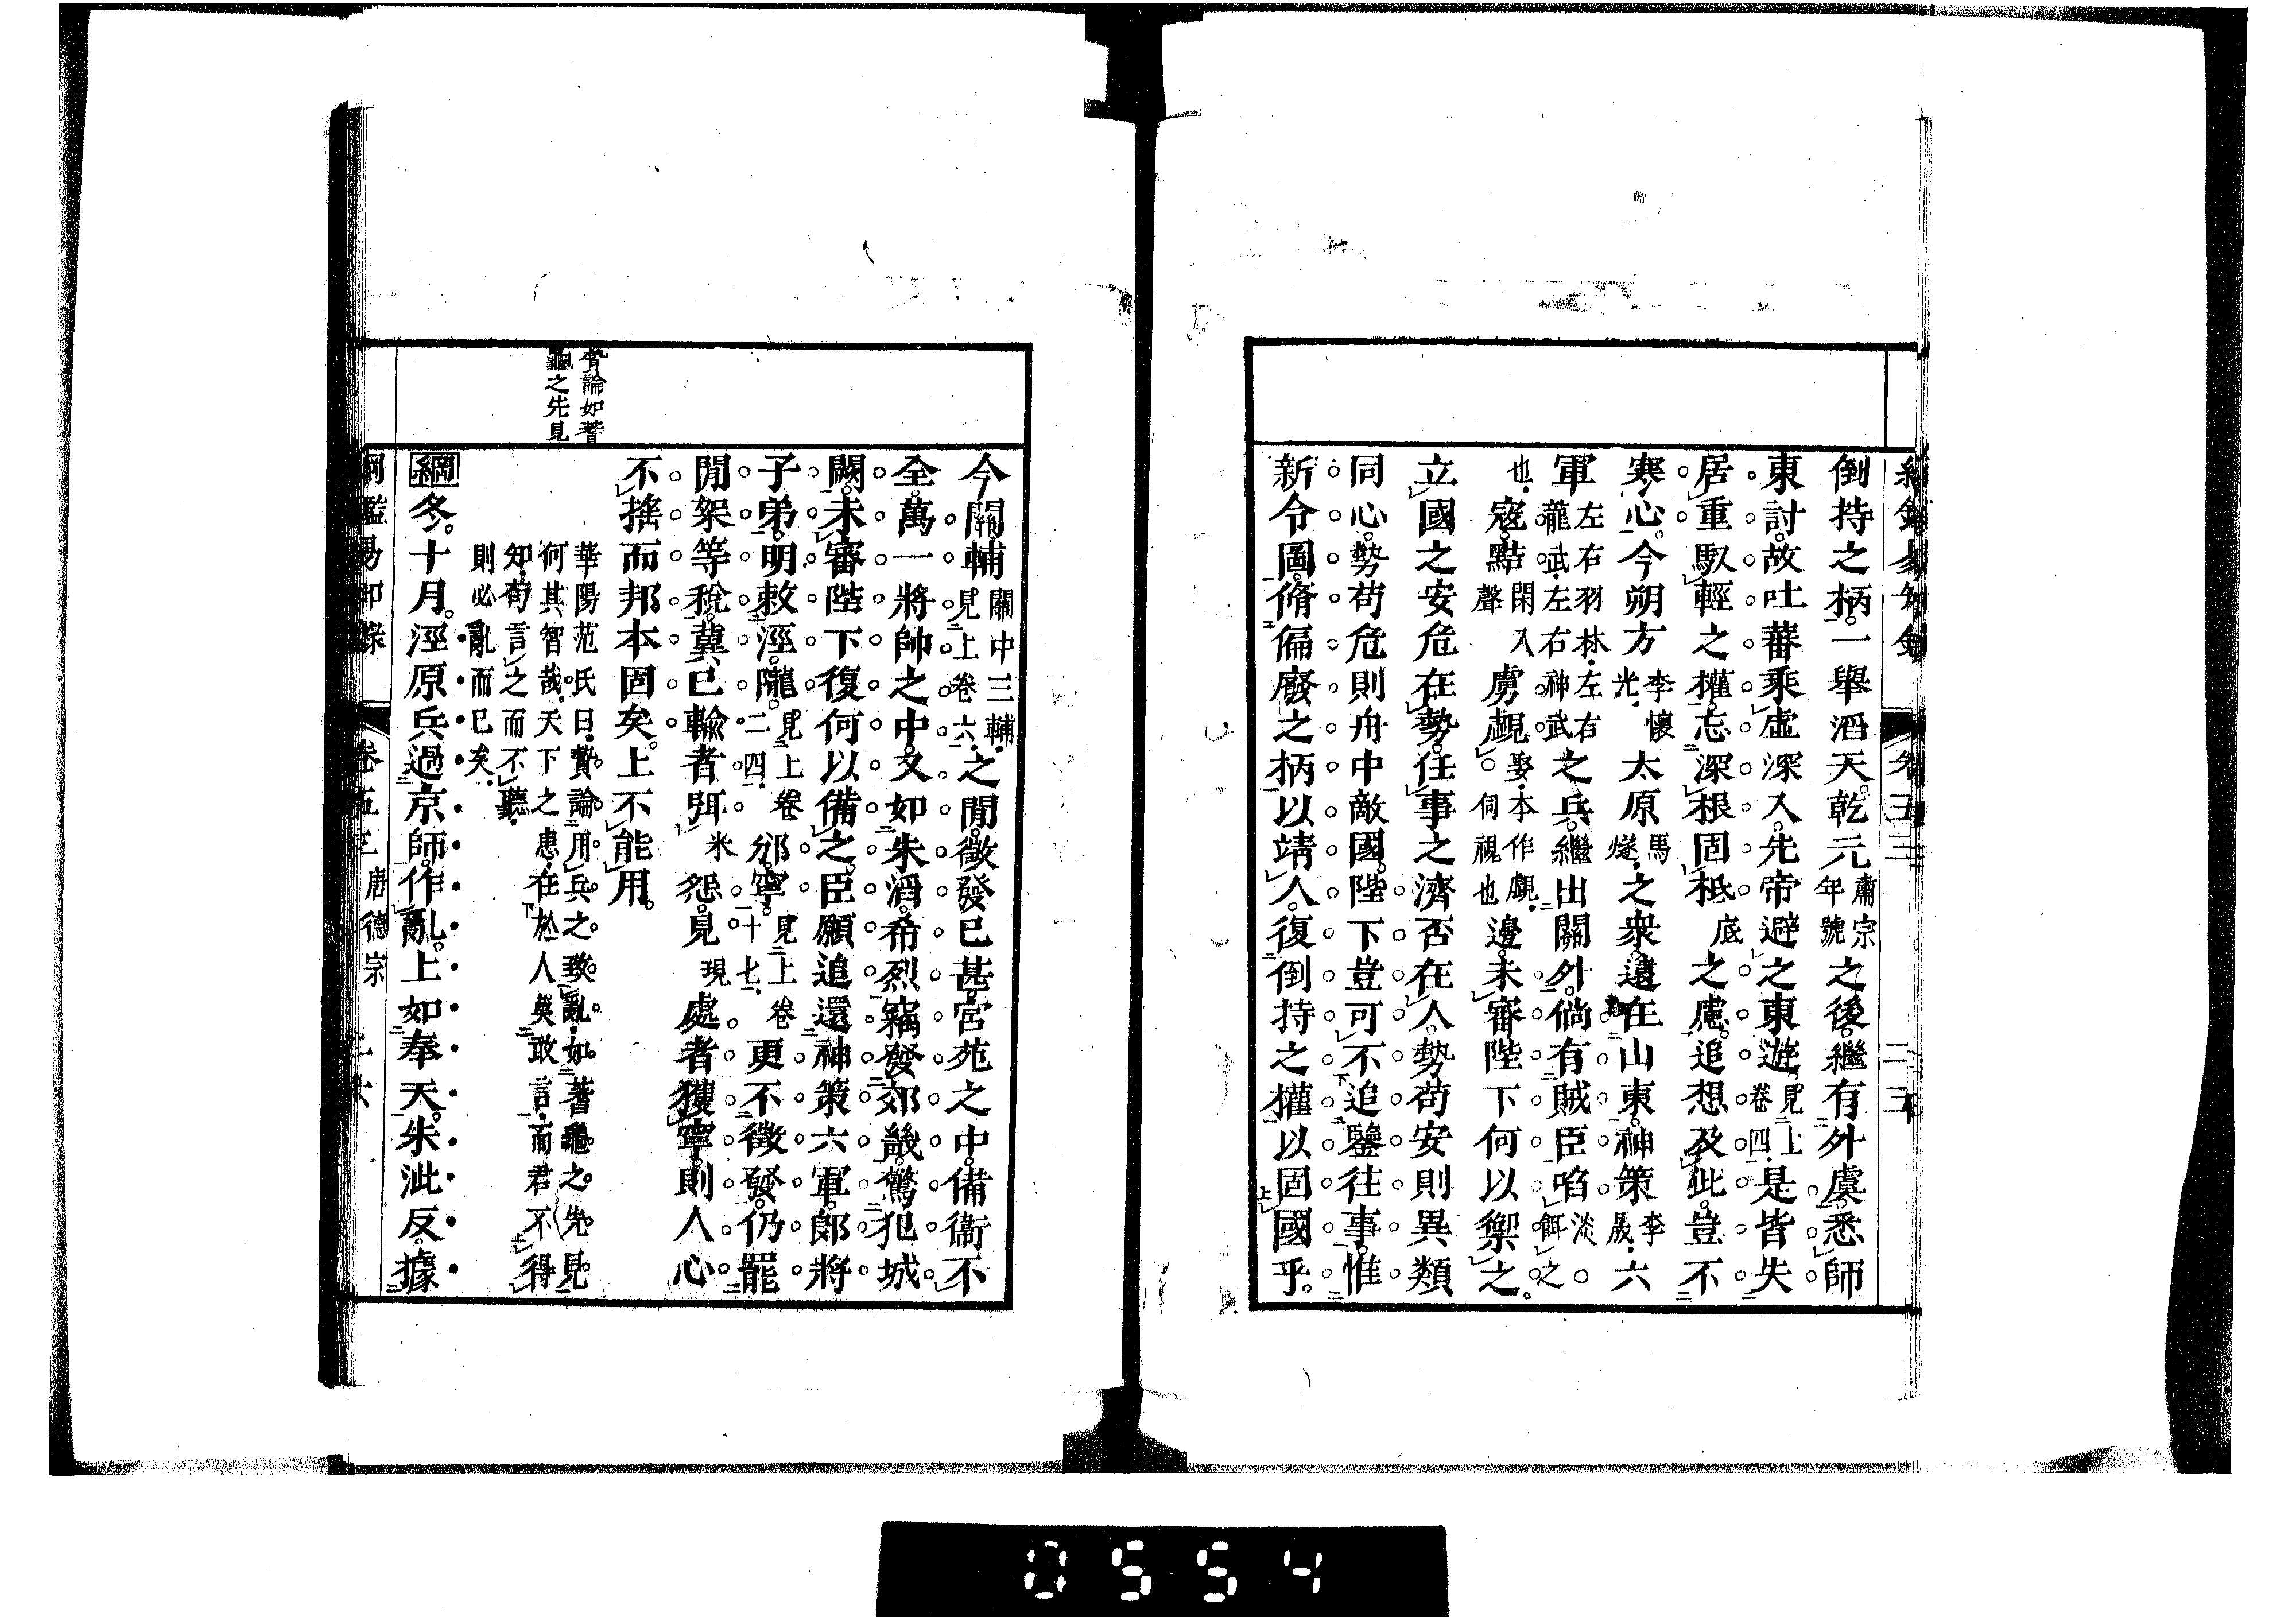 綱鑑易知錄 卷五三 二五
倒持之柄一舉滔天乾元肅宗年號之後繼有外虞悉師
東討故吐蕃乘虛深入先帝避之東遊見上卷四是皆失
居重馭輕之權忘深根固柢底之慮追想及此豈不
寒心今朔方李懷光太原馬燧之衆遠在山東神策李晟六
軍左右羽林左右龍武左右神武之兵繼出關外倘有賊臣啗淡餌之
也寇黠閑入聲虜覰娶本作覷伺視也邊未審陛下何以禦之
立國之安危在勢任事之濟否在人勢苟安則異類
同心勢苟危則舟中敵國陛下豈可不追鑒往事惟
新令圖脩偏廢之柄以靖人復倒持之權以固國乎
今關輔關中三輔見上卷六之間徵發已甚宮苑之中備衞不
全萬一將帥之中又如朱滔希烈竊發郊畿驚犯城
闕未審陛下復何以備之臣願追還神策六軍郞將
子弟明敕涇隴見上卷二四邠寧見上卷十七更不徵發仍罷
閒架等稅冀已輸者弭米怨見現處者獲寧則人心
不搖而邦本固矣上不能用
贄論如蓍
龜之先見
華陽范氏曰贄論用兵之致亂如蓍龜之先見
何其智哉天下之患在於人莫敢言而君不得
知苟言之而不聽
則必亂而已矣
綱冬十月涇原兵過京師作亂上如奉天朱泚反據
綱鑑易知錄 卷五三 唐德宗 二六
0554